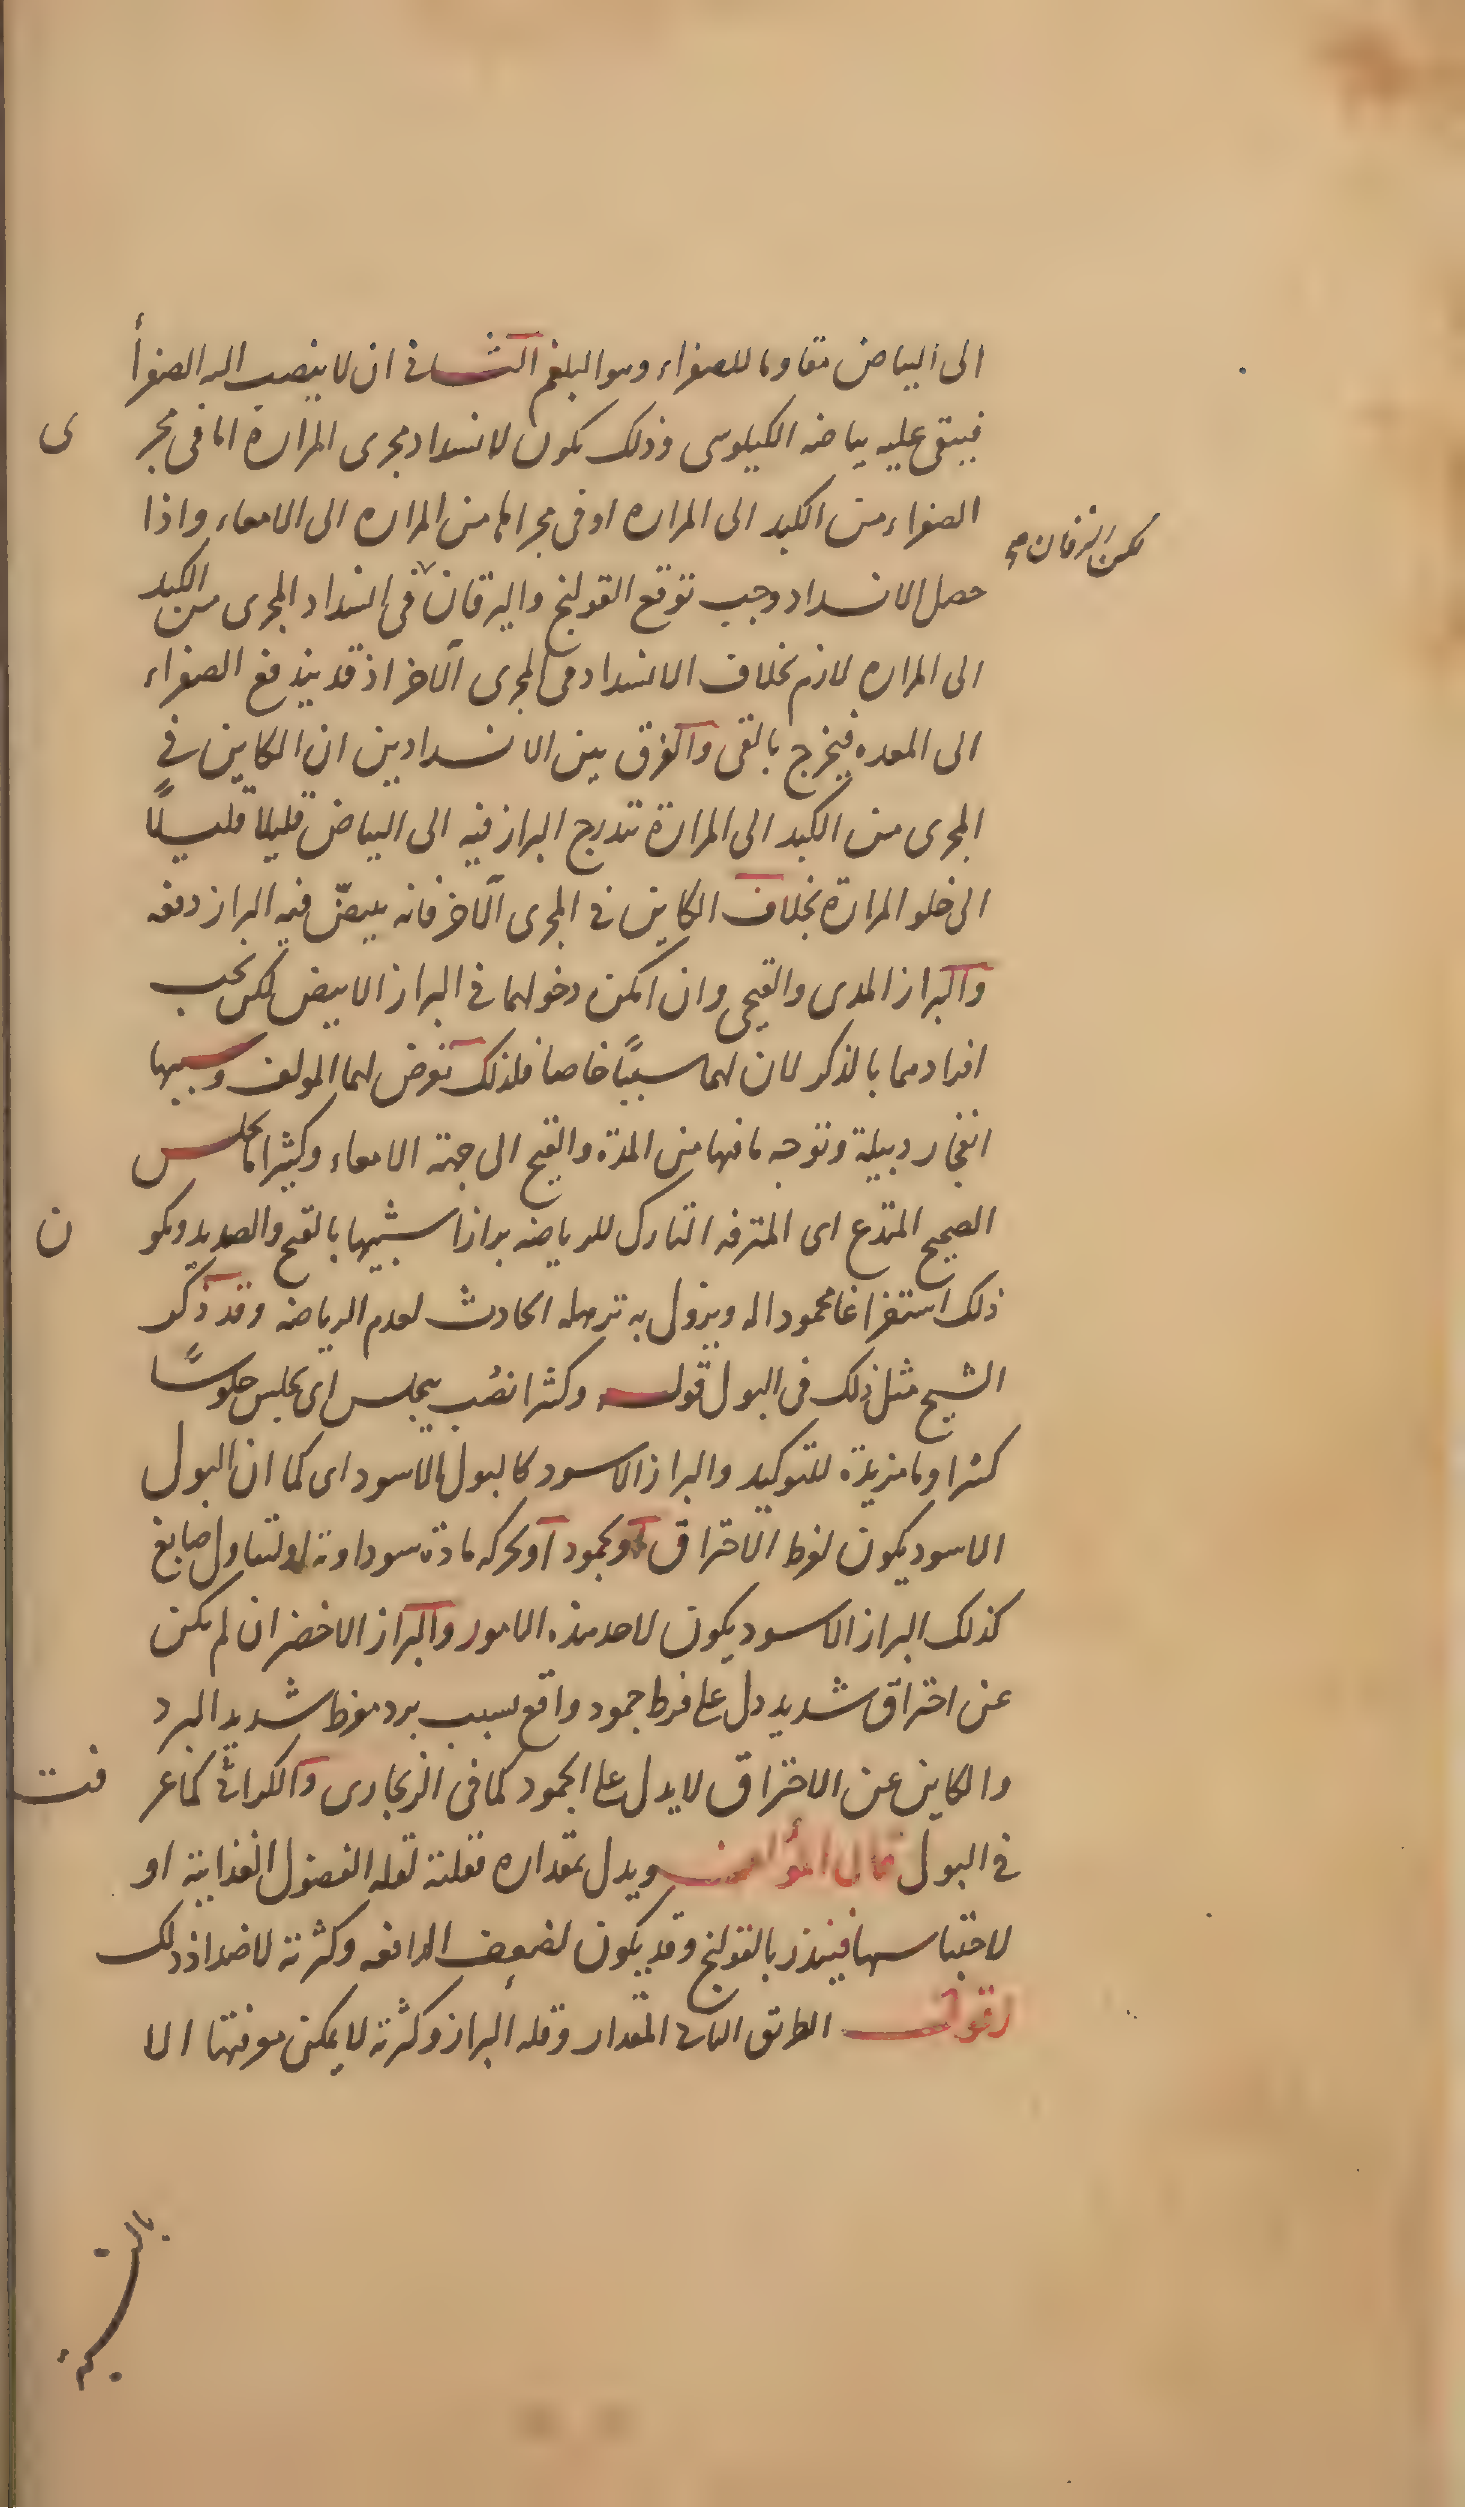 الى البياض مقاوما للصفراء وهو البلغم الثانى ان لا ينصب اليه الصفرأ
فيبقى عليه بياضه الكيلوسى وذلك يكون لانسداد مجرى المرارة اما فى مجرى
الصفراء من الكبد الى المراره او فى مجراها من المراره الى الامعاء واذا
لكن اليرقان
حصل الانسداد وجب توقع القولنج واليرقان فى انسداد المجرى من الكبد
الى المراره لازم بخلاف الانسداد فى المجرى الآخر اذ قد يندفع الصفراء
الى المعده فيخرج بالقى والفرق بين الانسدادين ان الكاين فى
المجرى من الكبد الى المرارة يتدرج البراز فيه الى البياض قليلا قليلًا
الى خلو المرارة بخلاف الكاين فى المجرى الآخر فانه يبيضّ فيه البراز دفعه
والبراز المدى والقيحى وان امكن دخولهما فى البراز الابيض لكن يجب
افرادهما بالذكر لان لهما سببًا خاصا فلذلك تعرض لهما المولف وسببها
انفجار دبيلة وتوجه ما فيها من المدة والقيح الى جهة الامعاء وكثيرا ما يجلس
الصحيح المتدع اى المترفه التارك للرياضه برازا شبيها بالقيح والصديد ويكون
ذلك استفراغا محمودا له ويزول به ترهله الحادث لعدم الرياضه وقد ذكر
الشيخ مثل ذلك فى البول قوله وكثيرا نصب بيجلس اى يجلس جلوسًا
كثيرا وما مزيدة للتوكيد والبراز الاسود كالبول الاسود اى كما ان البول
الاسود يكون لفرط الاحتراق او لجمود او لحركه مادة سوداوية او لتناول صابغ
كذلك البراز الاسود يكون لاحد هذه الامور والبراز الاخضر ان لم يكن
عن احتراق شديد دل على فرط جمود واقع بسبب برد مفرط شديد البرد
والكاين عن الاحتراق لا يدل على الجمود كما فى الزنجارى والكراثى كما عرفت
فى البول قال المؤلف ويدل بمقداره فقلته لقله الفضول الغذايية او
لاحتباسها فينذر بالقولنج وقد يكون لضعف الدافعه وكثرته لاضداد ذلك
اقول الطريق الثانى المقدار وقله البراز وكثرته لا يمكن معرفتها الا